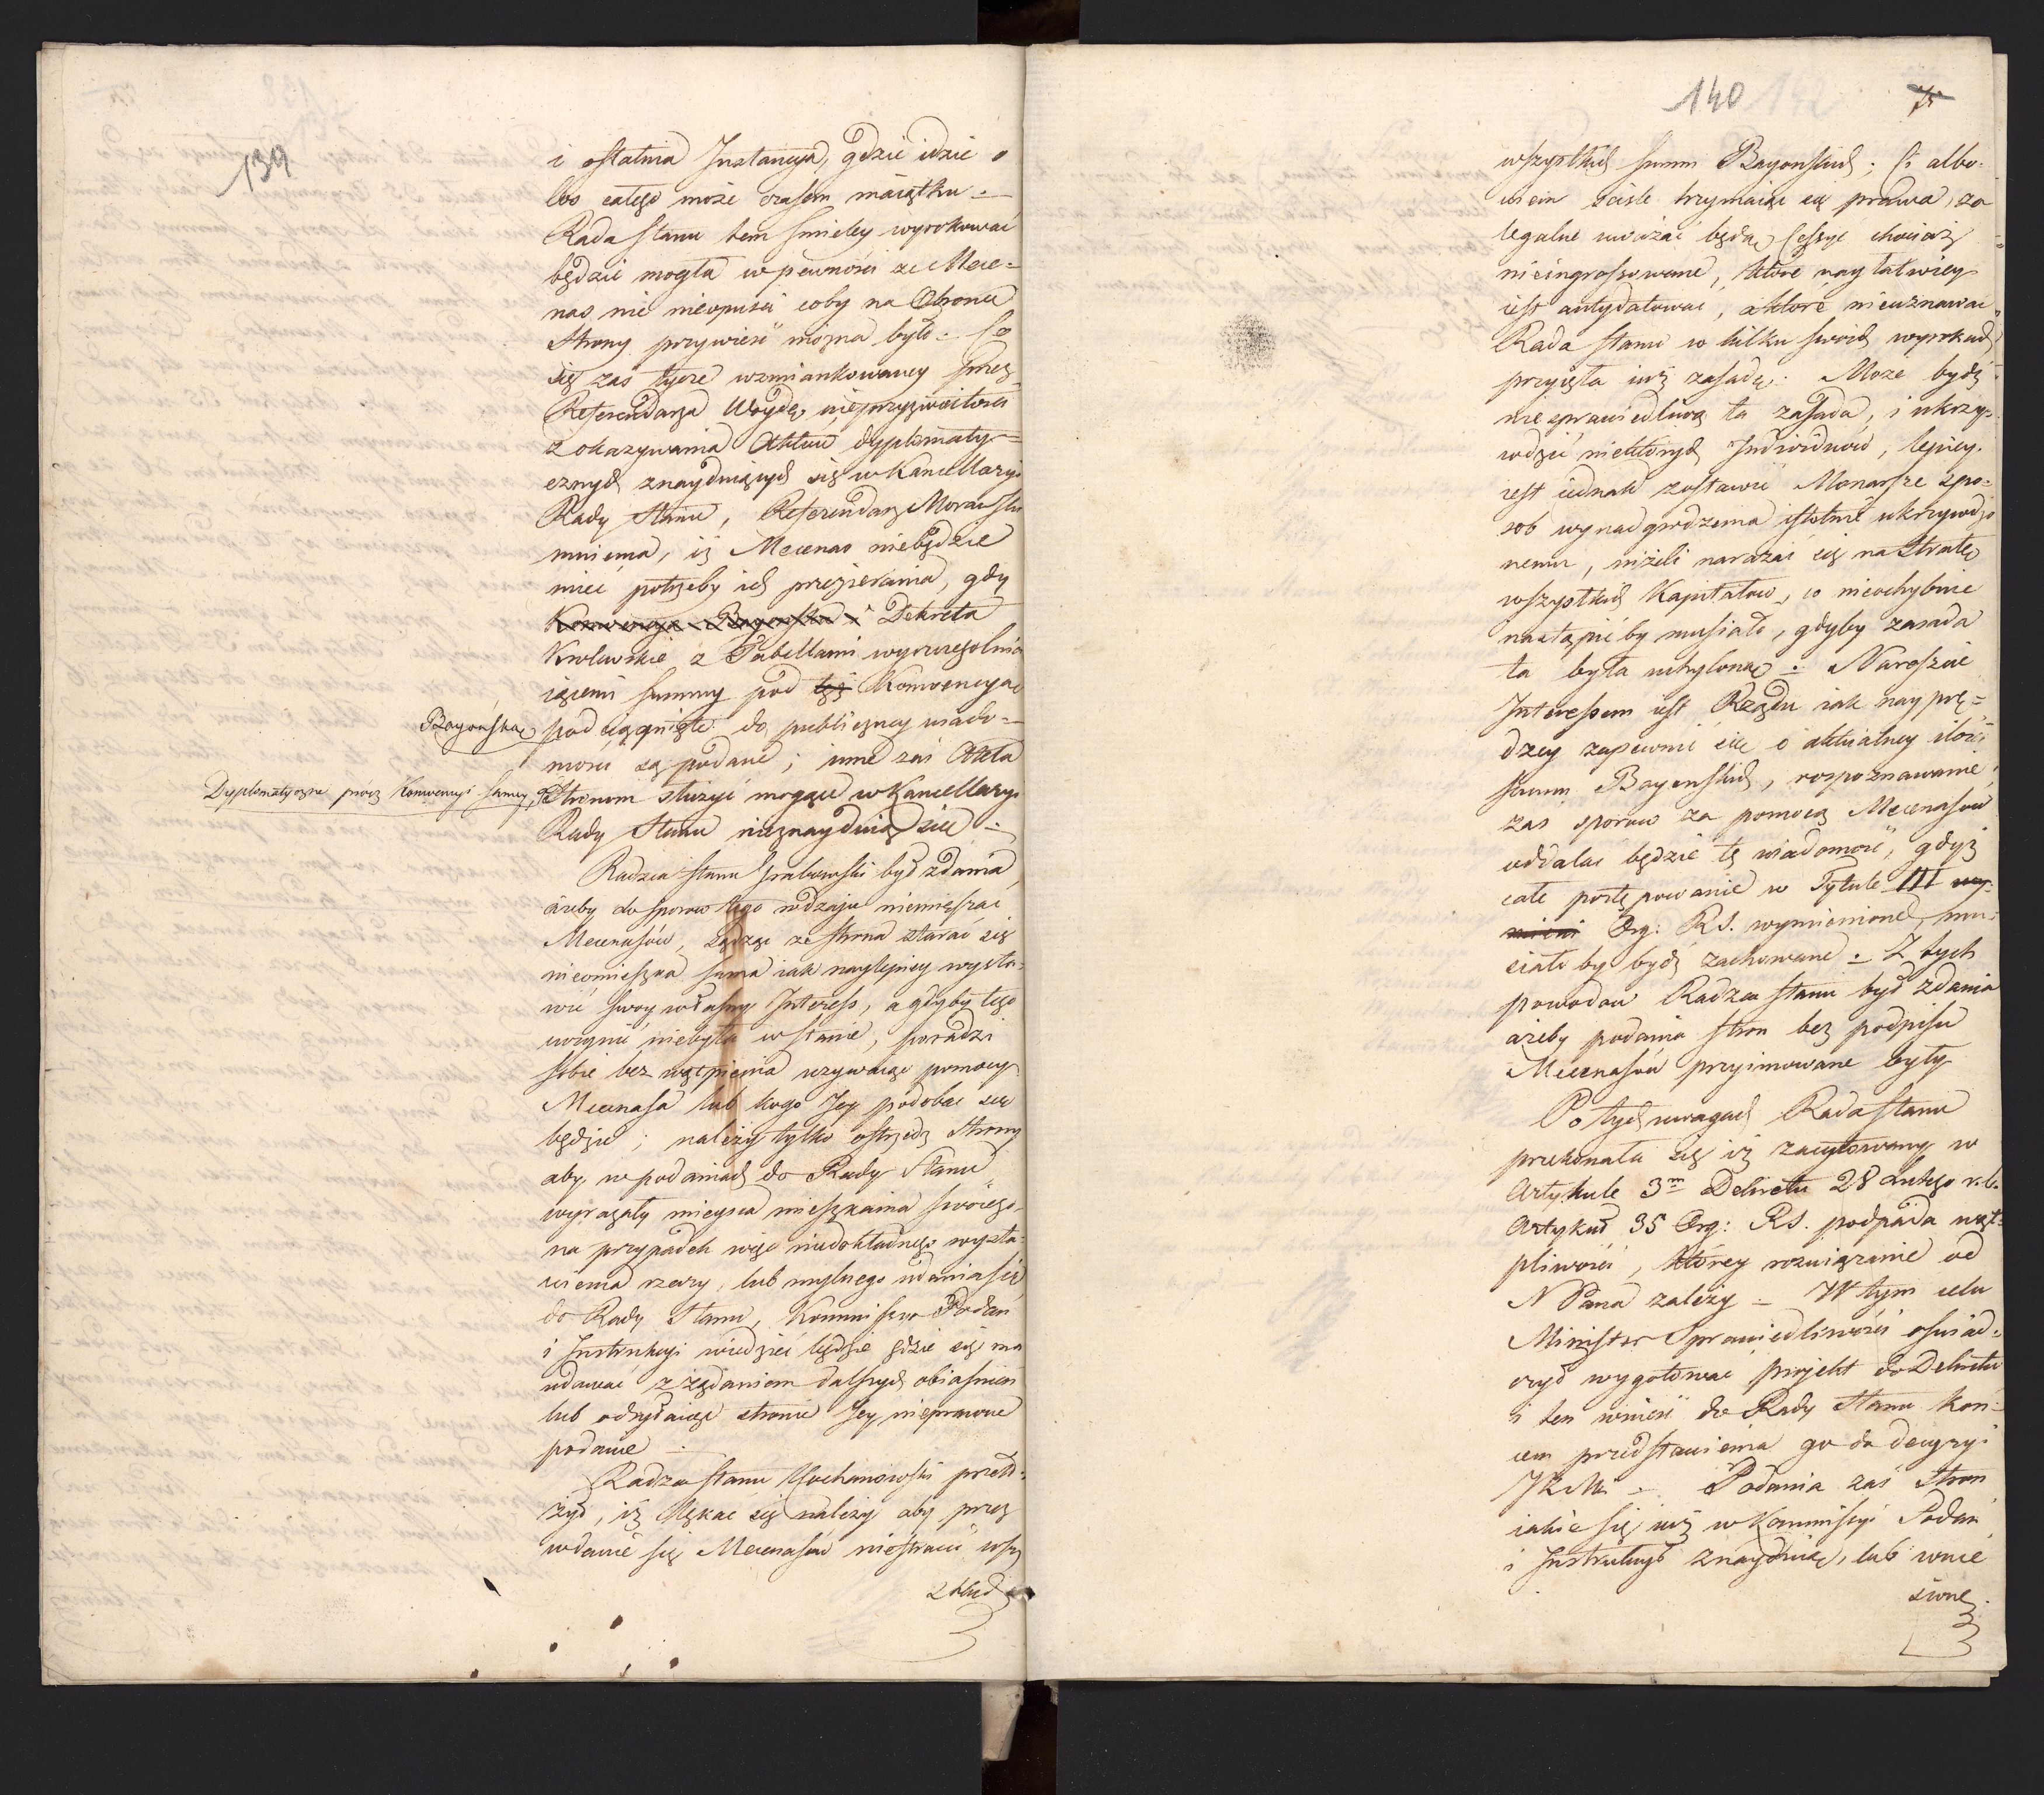 139
i ostatnia Instancya, gdzie idzie o
los całego może czasem maiątku -
Rada Stanu tem śmieley wyrokować
będzie mogła w pewności ze Mece=
nas nic nieopuści coby na Obronę
Strony przywieść można było - Co
się zaś tycze wzmiankowaney przez
Referendarza Woydę nieprzyzwoitości
z okazywania Aktów dyplomaty=
cznych znayduiących się w Kancellaryi
Rady Stanu, Referendarz Morawski
mniema, iż Mecenas niebędzie
mieć potrzeby ich przezierania, gdy
Konwencya Bayońska i Dekreta
Krolewskie z Tabellami wyszczegolnia
iącemi summy pod tęż Konwencyą
Bayońską
podciągnięte do publiczney wiado=
mości są podane; inne zaś Akta
Dyplomatyczne prócz Konwencyi samey,
Stronom służyć mogące w Kancellaryi
Rady Stanu nieznayduią sie -
Radzca Stanu Grabowski był zdania,
ażeby do sporow tego rodzaju niemięszać
Mecenasów, sądząc ze strona starać się
nieomieszka sama iak naylepiey wysta=
wić swoy własny Interess, a gdyby tego
uczynić niebyła w stanie, poradzi
sobie bez wątpienia uzywaiąc pomocy
Mecenasa lub kogo Jey podobać się
będzie; należy tylko ostrzedz Strony
aby w podaniach do Rady Stanu
wyrazały mieysca mieszkania swoiego
na przypadek więc niedokładnego wysta=
wienia rzeczy, lub mylnego udania się
do Rady Stanu, Kommissya Podań
i Instrukcyi wiedzieć będzie gdzie się ma
udawać z ządaniem dalszych obiaśnień
lub odsyłaiąc stronie Jey nieprawne
podanie -
Radzca Stanu Kochanowski przeło=
żył, iż lękać się należy aby przez
wdanie się Mecenasów niestracić wszy
stkich
140 142
75
wszystkich summ Bayonskich; Ci albo=
wiem ściśle trzymaiąc się prawa, za
legalne uważać będą Cessye chociaż
nieingrossowane, które nayłatwiey
iest antydatować, a które nieuznawać
Rada Stanu w kilku swoich wyrokach
przyięła iuż zasadę. Moze bydź
niesprawiedliwą ta zasada, i ukrzy=
wdzić niektórych Indiwiduów, lepiey
iest iednak zostawić Monarsze spo=
sob wynadgrodzenia istotnie ukrzywdzo
nemu, niżeli narażać się na Stratę
wszystkich Kapitałow, co nieochybnie
nastąpić by musiało, gdyby zasada
ta była uchyloną - Nareszcie
Interessem iest Rządu iak nayprę=
dzey zapewnić się o aktualney ilości
summ Bayonskich, rozpoznawanie
zaś sporow za pomocą Mecenasow
oddalać będzie tę wiadomość, gdyż
całe postępowanie w Tytule III
Org: RS. wymienione, mu=
siało by bydź zachowane - Z tych
powodow Radzca Stanu był zdania
ażeby podania stron bez podpisu
Mecenasów przyimowane były
Po tych uwagach Rada Stanu
przekonała się iż zacytowany w
Artykule 3m Dekretu 28 Lutego r. b.
Artykuł 35 Org: RS. podpada wąt=
pliwości, którey rozwiązanie od
N Pana zależy - W tym celu
Minister Sprawiedliwości oświad=
czył wygotować projekt do Dekretu
i ten wnieść do Rady Stanu koń=
cem przedstawienia go do decyzyi
JKMci - Podania zaś Stron
iakie się iuż w Kommissyi Podań
i Instrukcyi znayduią, lub wnie
sione